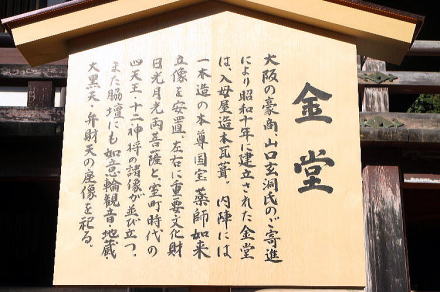 金堂
大阪の豪商、山口玄洞氏のご寄進
により昭和十年に建立された金堂
は、入母屋造本瓦葺。内陣には
一木造の本尊国宝薬師如来
立像を安置、左右に重要文化財
日光月光両菩薩と、室町時代の
四天王・十二神将の諸像が並び立つ。
また脇壇にも如意輪観音・地蔵
大黒天・弁財天の座像を祀る。